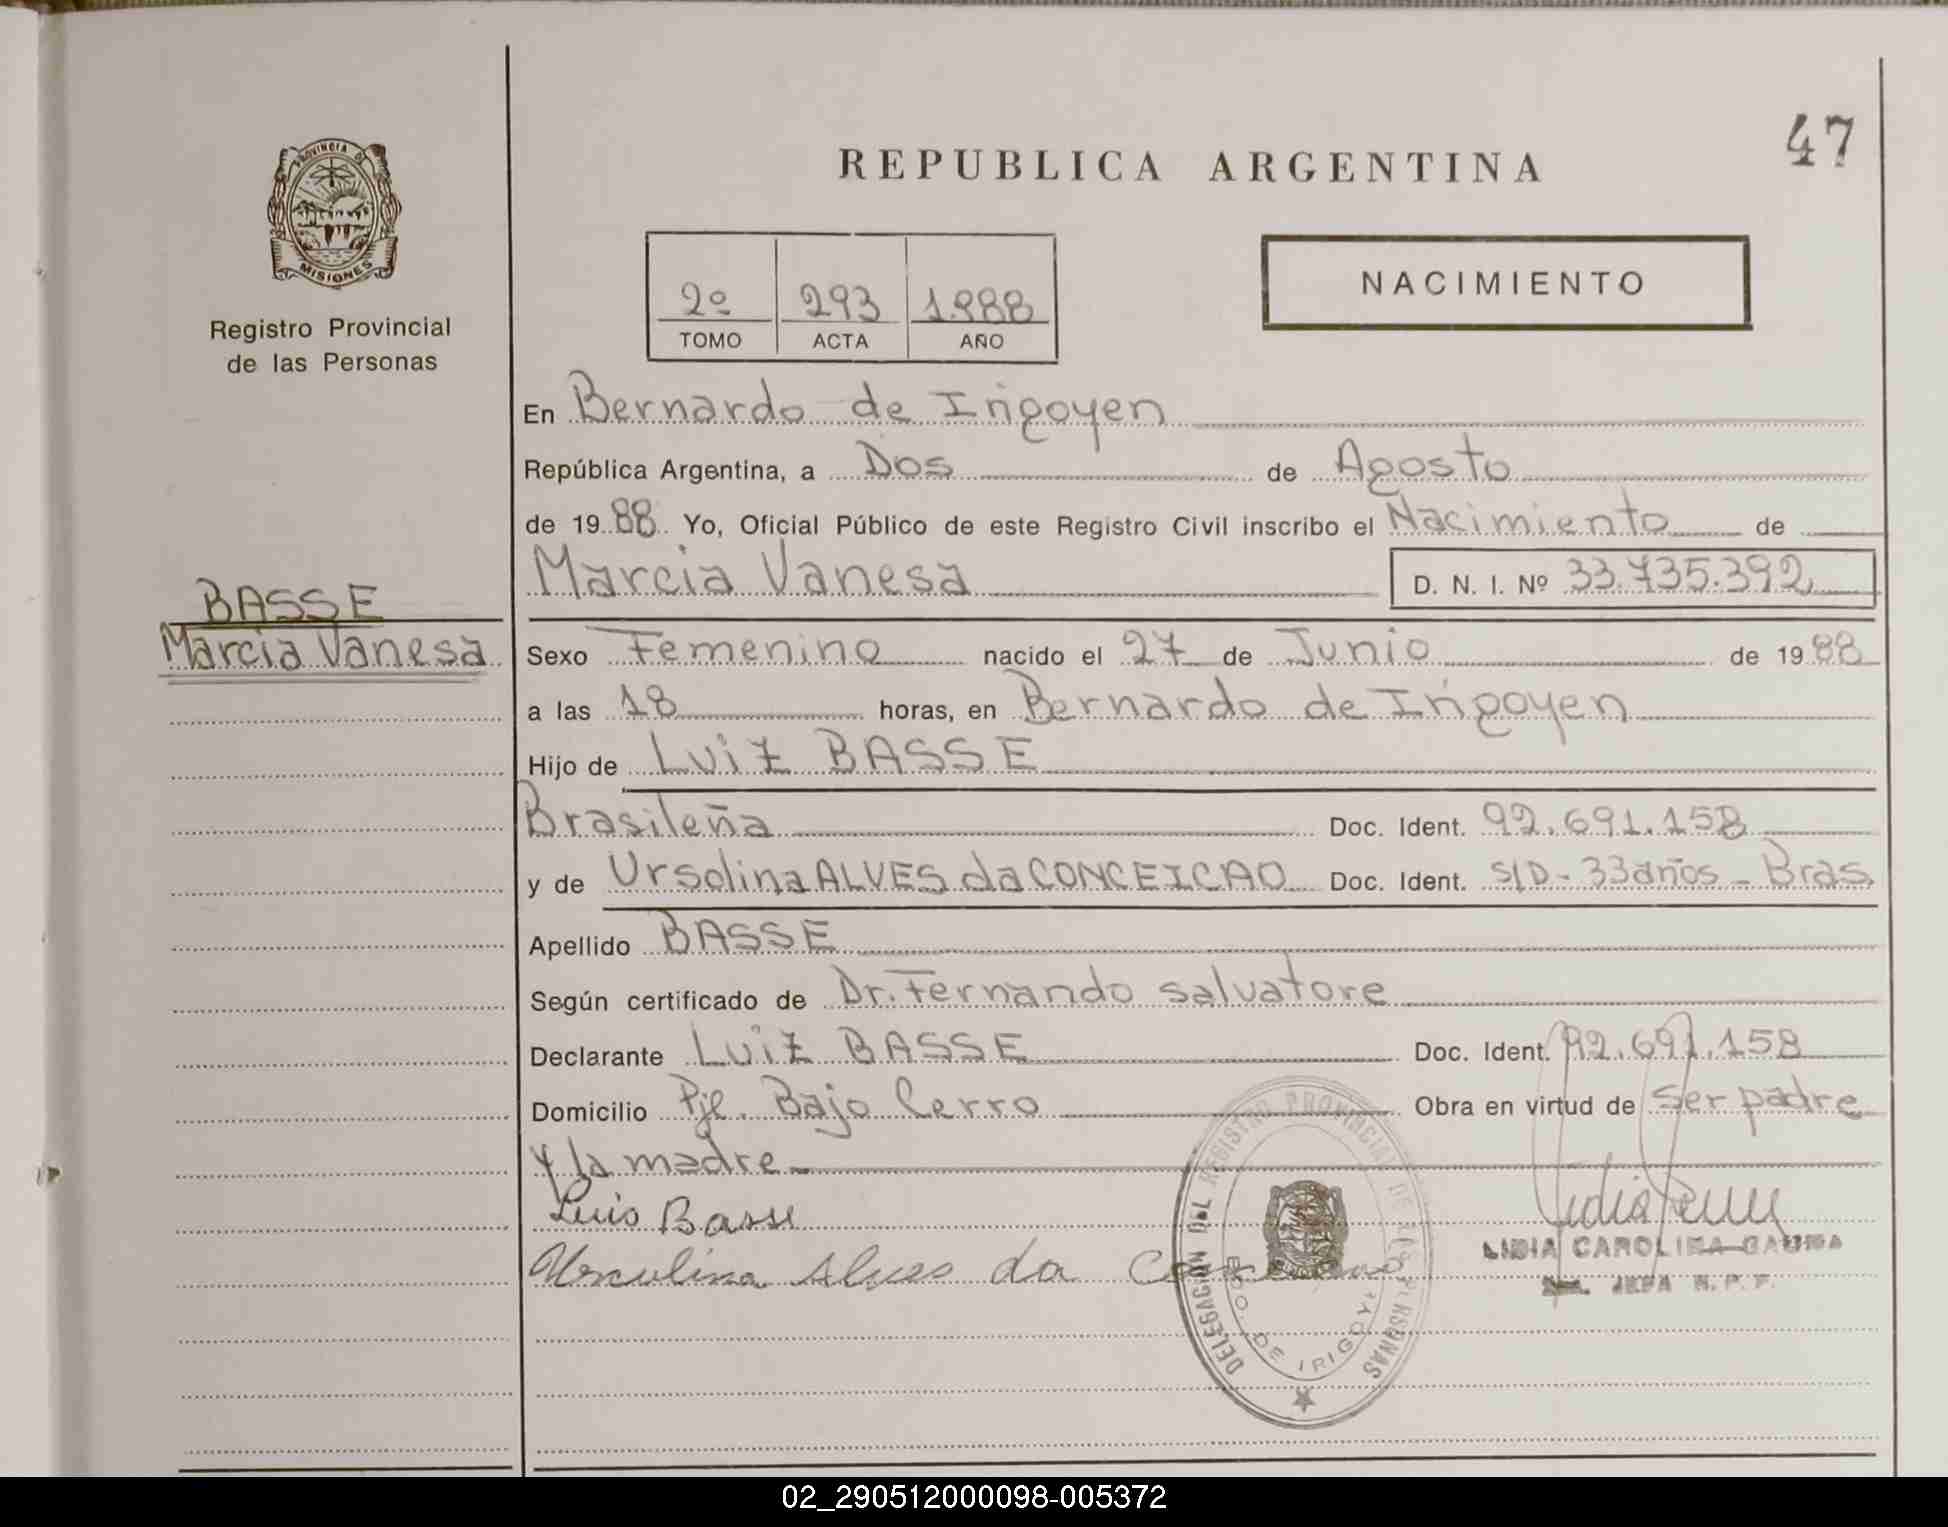 47
PROVINCIA DE
MISIONES
Registro Provincial
de las Personas
REPUBLICA ARGENTINA
2º 293 1.988
TOMO ACTA AÑO
NACIMIENTO
En Bernardo de Irigoyen
República Argentina, a Dos de Agosto
de 19 88 Yo, Oficial Público de este Registro Civil inscribo el Nacimiento de
Marcia Vanesa D. N. I. Nº 33.735.392
BASSE
Marcia Vanesa
Sexo Femenino nacido el 27 de Junio de 19 88
a las 18 horas, en Bernardo de Irigoyen
Hijo de Luiz BASSE
Brasileña Doc. Ident. 92.691.158
y de Ursolina ALVES da CONCEICAO Doc. Ident. S/D - 33 años - Bras.
Apellido BASSE
Según certificado de Dr. Fernando Salvatore
Declarante Luiz BASSE Doc. Ident. 92.691.158
Domicilio Pje. Bajo Cerro Obra en virtud de ser padre
y la madre
Luis Basse
Ursulina Alves da
DELEGACION DEL REGISTRO PROVINCIAL DE LAS PERSONAS
BDO. DE IRIGOYEN
LIDIA CAROLINA
JEFA R. P. P.
02_290512000098-005372